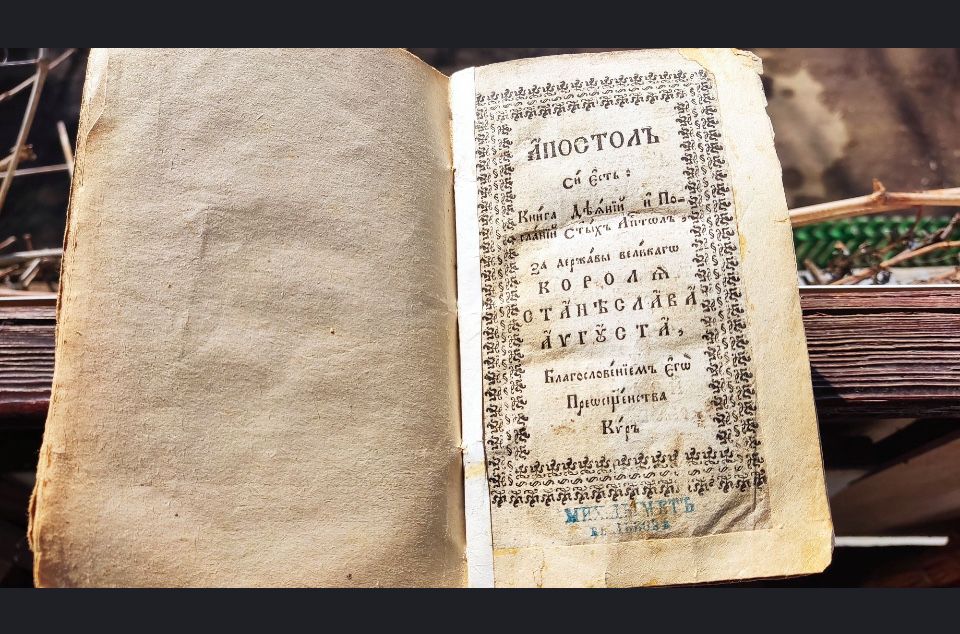 А҆ПОСТОЛЪ
Сѝ Е҆сть :
Кни́га Дѣѧ́нїй и҆ По-
сланїй Ст҃ы́хъ Ап҇толъ ,
За держа́вы вели́кагѡ
КОРОЛѦ̀
СТАНѢСЛА́ВА
А҆ѴГꙊ́СТА,
Благослове́нїемъ Е҆гѡ̀
Преѡсщ҃е́нства
Кѵ́ръ
ВЪ ЛЬВОВѢ